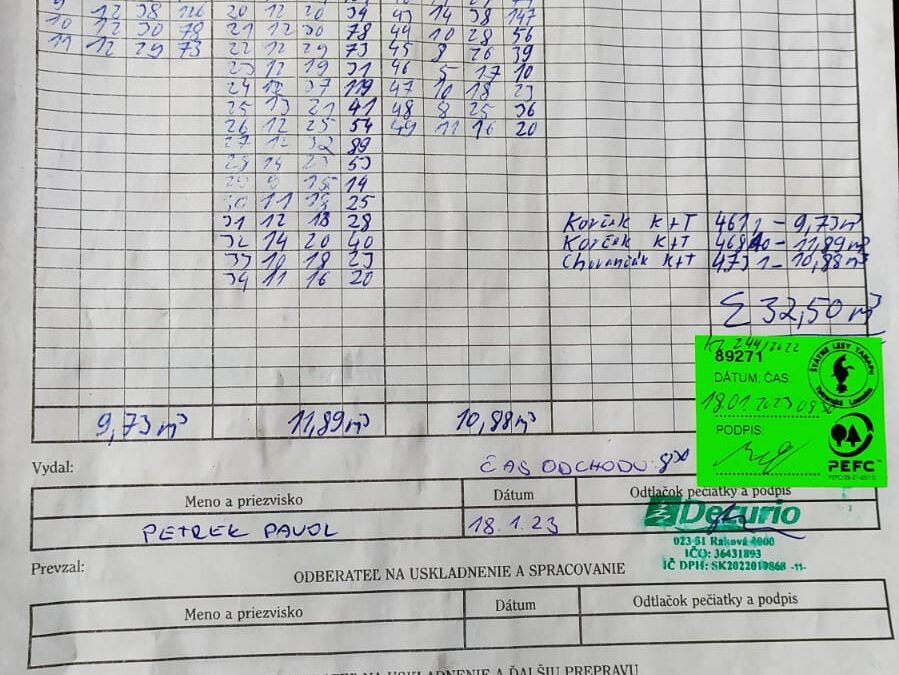 9 12 38 126 20 12 26 54 43 14 38 147
10 12 30 78 21 12 30 78 44 10 28 56
11 12 29 73 22 12 29 73 45 8 26 39
23 12 19 31 46 5 17 10
24 12 37 119 47 10 18 23
25 13 21 41 48 8 25 36
26 12 25 54 49 11 16 20
27 12 32 89
28 14 23 53
29 9 15 14
30 11 18 25
31 12 18 28 Korčák K+T 461 - 9,73 m³
32 14 20 40 Korčák K+T 468 - 11,89 m³
33 10 18 23 K+T 473 - 10,88 m³
34 11 16 20
Σ 32,50 m³
244/2022
89271
DÁTUM, ČAS
18.01.2023
PODPIS:
ŠTÁTNE LESY TANAPu
PEFC™
9,73 m³ 11,89 m³ 10,88 m³
Vydal: ČAS ODCHODU 8³⁰
Meno a priezvisko Dátum Odtlačok pečiatky a podpis
PETREK PAVOL 18.1.23
023 51 Raková 4000
IČO: 36431893
IČ DPH: SK2022019868 -11-
Prevzal: ODBERATEĽ NA USKLADNENIE A SPRACOVANIE
Meno a priezvisko Dátum Odtlačok pečiatky a podpis
NA USKLADNENIE A ĎALŠIU PREPRAVU